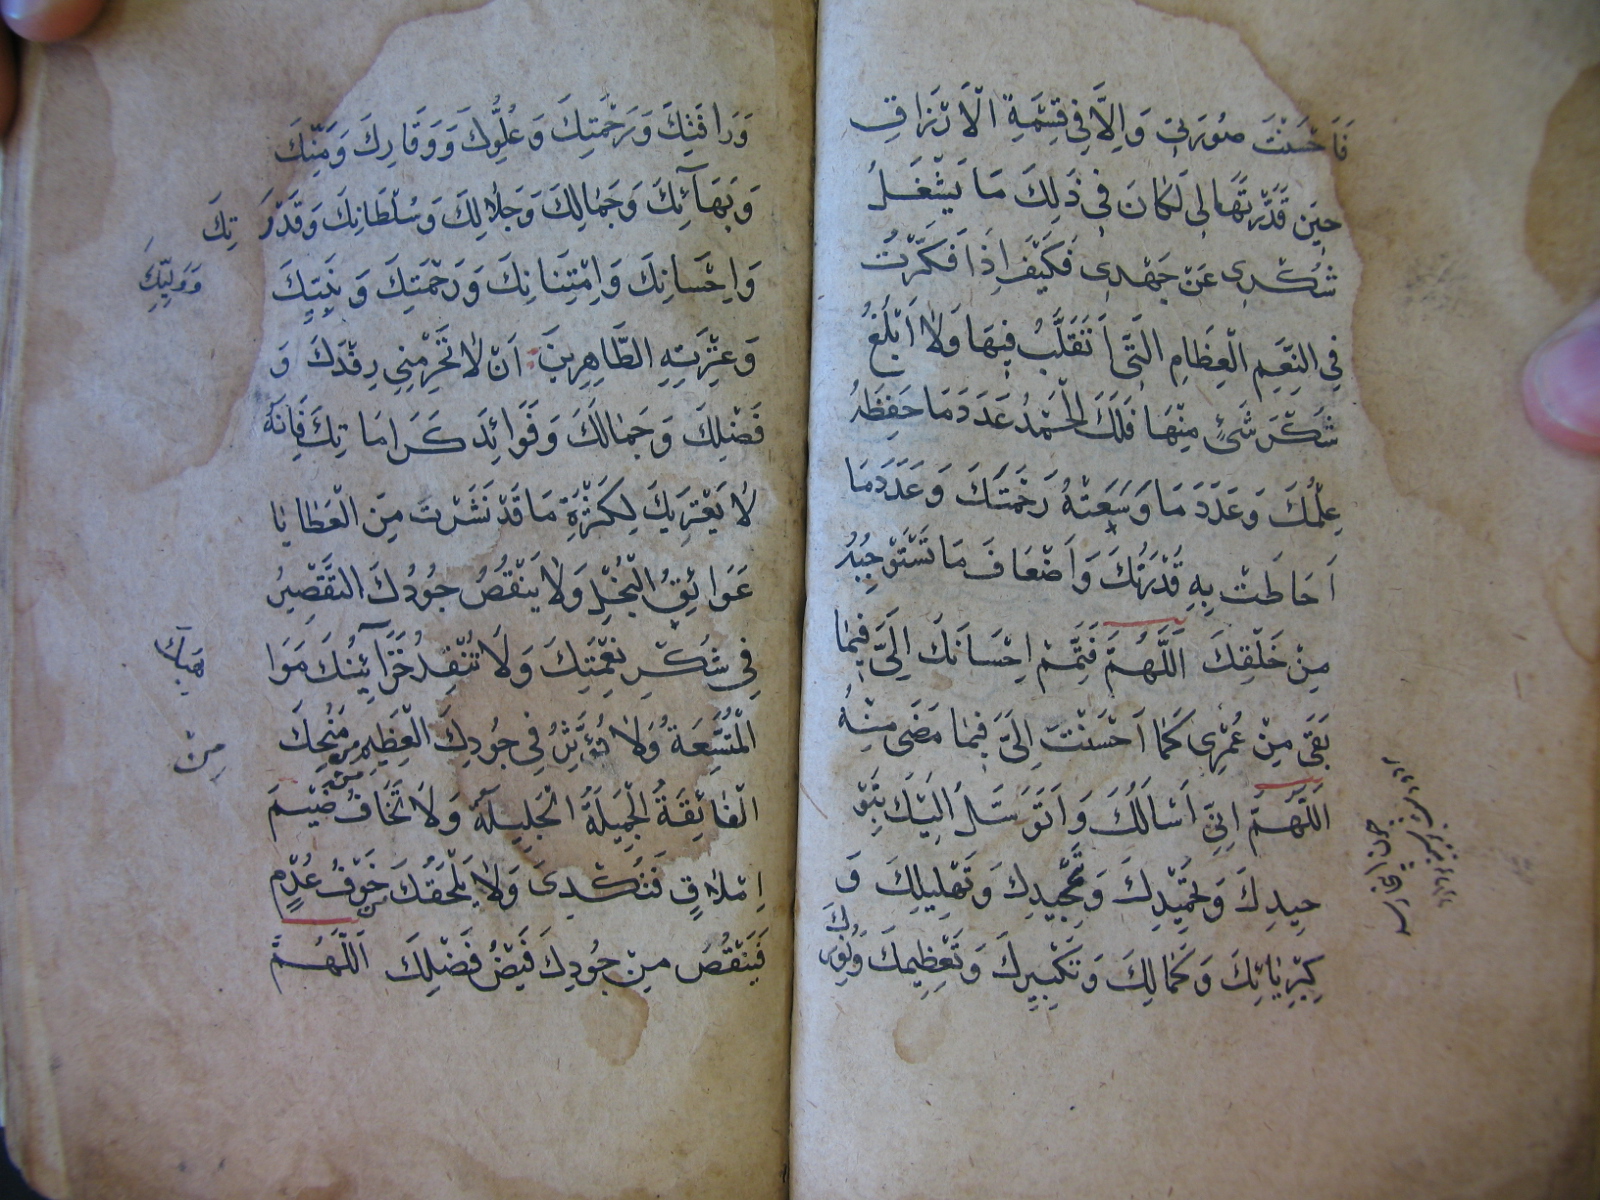 فَاَحْسَنْتَ صُورَتِي وَ اِلَّا فِي قِسْمَةِ الْاَرْزَاقِ
حِينَ قَدَّرْتَهَا لِي لَكَانَ فِي ذٰلِكَ مَا يَشْغَلُ
شُكْرِي عَنْ جَهْدِي فَكَيْفَ اِذَا فَكَّرْتُ
فِي النِّعَمِ الْعِظَامِ الَّتِي اَتَقَلَّبُ فِيهَا وَلَا اَبْلُغُ
شُكْرَ شَيْءٍ مِنْهَا فَلَكَ الْحَمْدُ عَدَدَ مَا حَفِظَهُ
عِلْمُكَ وَ عَدَدَ مَا وَسِعَتْهُ رَحْمَتُكَ وَ عَدَدَ مَا
اَحَاطَتْ بِهِ قُدْرَتُكَ وَ اَضْعَافَ مَا تَسْتَوْجِبُهُ
مِنْ خَلْقِكَ اَللّٰهُمَّ فَتَمِّمْ اِحْسَانَكَ اِلَيَّ فِيمَا
بَقِيَ مِنْ عُمْرِي كَمَا اَحْسَنْتَ اِلَيَّ فِيمَا مَضَى مِنْهُ
اَللّٰهُمَّ اِنِّي اَسْاَلُكَ وَ اَتَوَسَّلُ اِلَيْكَ بِتَوْ
حِيدِكَ وَ تَحْمِيدِكَ وَ تَمْجِيدِكَ وَ تَهْلِيلِكَ وَ
كِبْرِيَائِكَ وَ كَمَالِكَ وَ تَكْبِيرِكَ وَ تَعْظِيمِكَ وَ نُورِكَ
وَ رَافَتِكَ وَ رَحْمَتِكَ وَ عُلُوِّكَ وَ وَقَارِكَ وَ مَنِّكَ
وَ بَهَآئِكَ وَ جَمَالِكَ وَ جَلَالِكَ وَ سُلْطَانِكَ وَ قُدْرَتِكَ
وَ اِحْسَانِكَ وَ اِمْتِنَانِكَ وَ رَحْمَتِكَ وَ نَبِيِّكَ
وَ وَلِيِّكَ
وَ عِتْرَتِهِ الطَّاهِرِينَ اَنْ لَا تَحْرِمْنِي رِفْدَكَ وَ
فَضْلَكَ وَ جَمَالَكَ وَ فَوَائِدَ كَرَامَاتِكَ فَاِنَّهُ
لَا يَعْتَرِيكَ لِكَثْرَةِ مَا قَدْ نَشَرْتَ مِنَ الْعَطَايَا
عَوَائِقُ الْبُخْلِ وَلَا يَنْقُصُ جُودَكَ التَّقْصِيرُ
فِي شُكْرِ نِعْمَتِكَ وَلَا تُنْفِدُ خَزَآئِنَكَ مَوَا
هِبُكَ
الْمُتَّسِعَةُ وَلَا تُؤَثِّرُ فِي جُودِكَ الْعَظِيمِ مِنَحُكَ
مِنْ
الْفَائِقَةُ الْجَمِيلَةُ الْجَلِيلَةُ وَلَا تَخَافُ ضَيْمَ
اِمْلَاقٍ فَتُكْدِي وَلَا يَلْحَقُكَ خَوْفُ عُدْمٍ
فَيَنْقُصُ مِنْ جُودِكَ فَيْضُ فَضْلِكَ اَللّٰهُمَّ